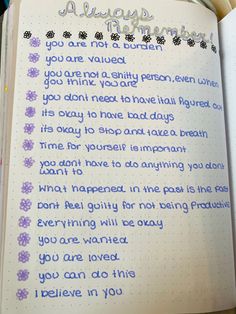 Always
Remember!
you are not a burden
you are valued
you are not a shitty person, even when
you think you are
you dont need to have it all figured out
its okay to have bad days
its okay to stop and take a breath
Time for yourself is important
you dont have to do anything you dont
want to
What happened in the past is the past
Dont feel guilty for not being productive
Everything will be okay
you are wanted
you are loved
you can do this
I believe in you